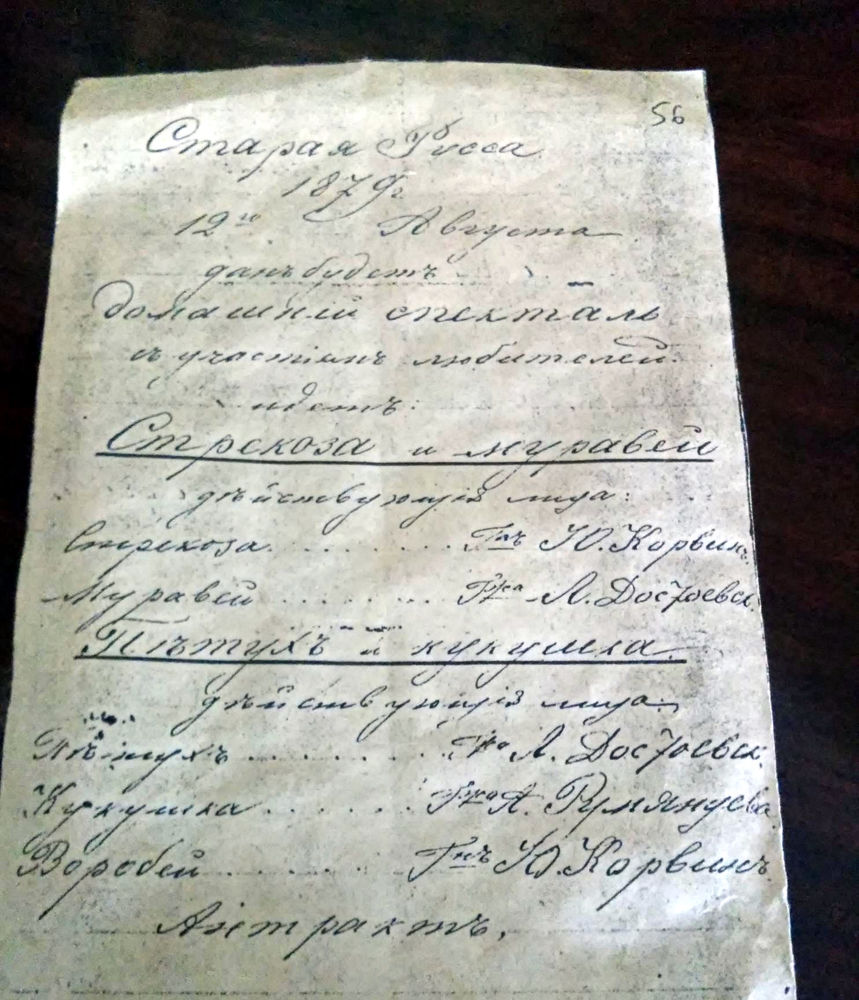 56
Старая Русса
1879 г.
12го Августа
данъ будетъ
домашній спекталь
съ участіемъ любителей.
идетъ:
Стрекоза и муравей
дѣйствующія лица:
Стрекоза. . . . . . . . . Гнъ Ю. Корвинъ.
Муравей . . . . . . . . Гжа Л. Достоевск.
Пѣтухъ и кукушка.
дѣйствующія лица
Пѣтухъ . . . . . . . . . Гжа Л. Достоевск.
Кукушка . . . . . . Гжа А. Румянцева.
Воробей . . . . . . . . Гнъ Ю. Корвинъ.
Антрактъ.